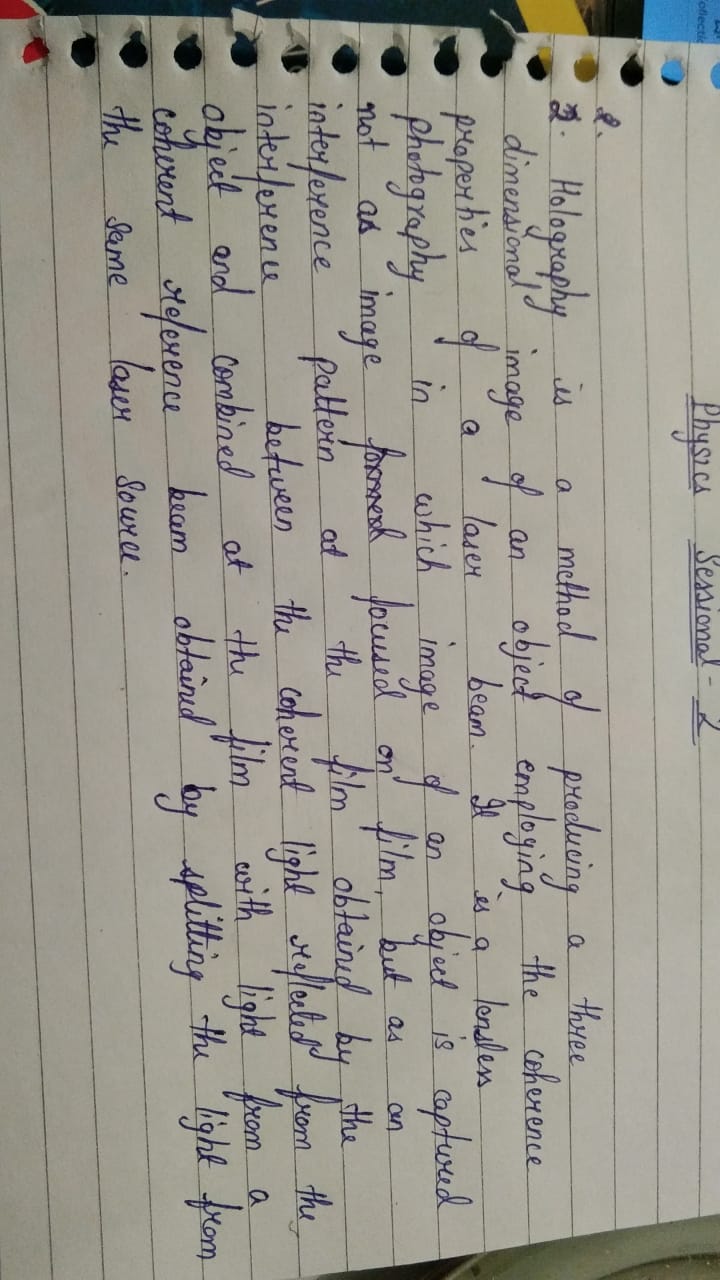 Physics Sessional - 2
2.
2. Holography is a method of producing a three
dimensional image of an object employing the coherence
properties of a laser beam. It is a lensless
photography in which image of an object is captured
not as image formed focused on film, but as an
interference pattern at the film obtained by the
interference between the coherent light reflected from the
object and combined at the film with light from a
coherent reference beam obtained by splitting the light from
the same laser source.